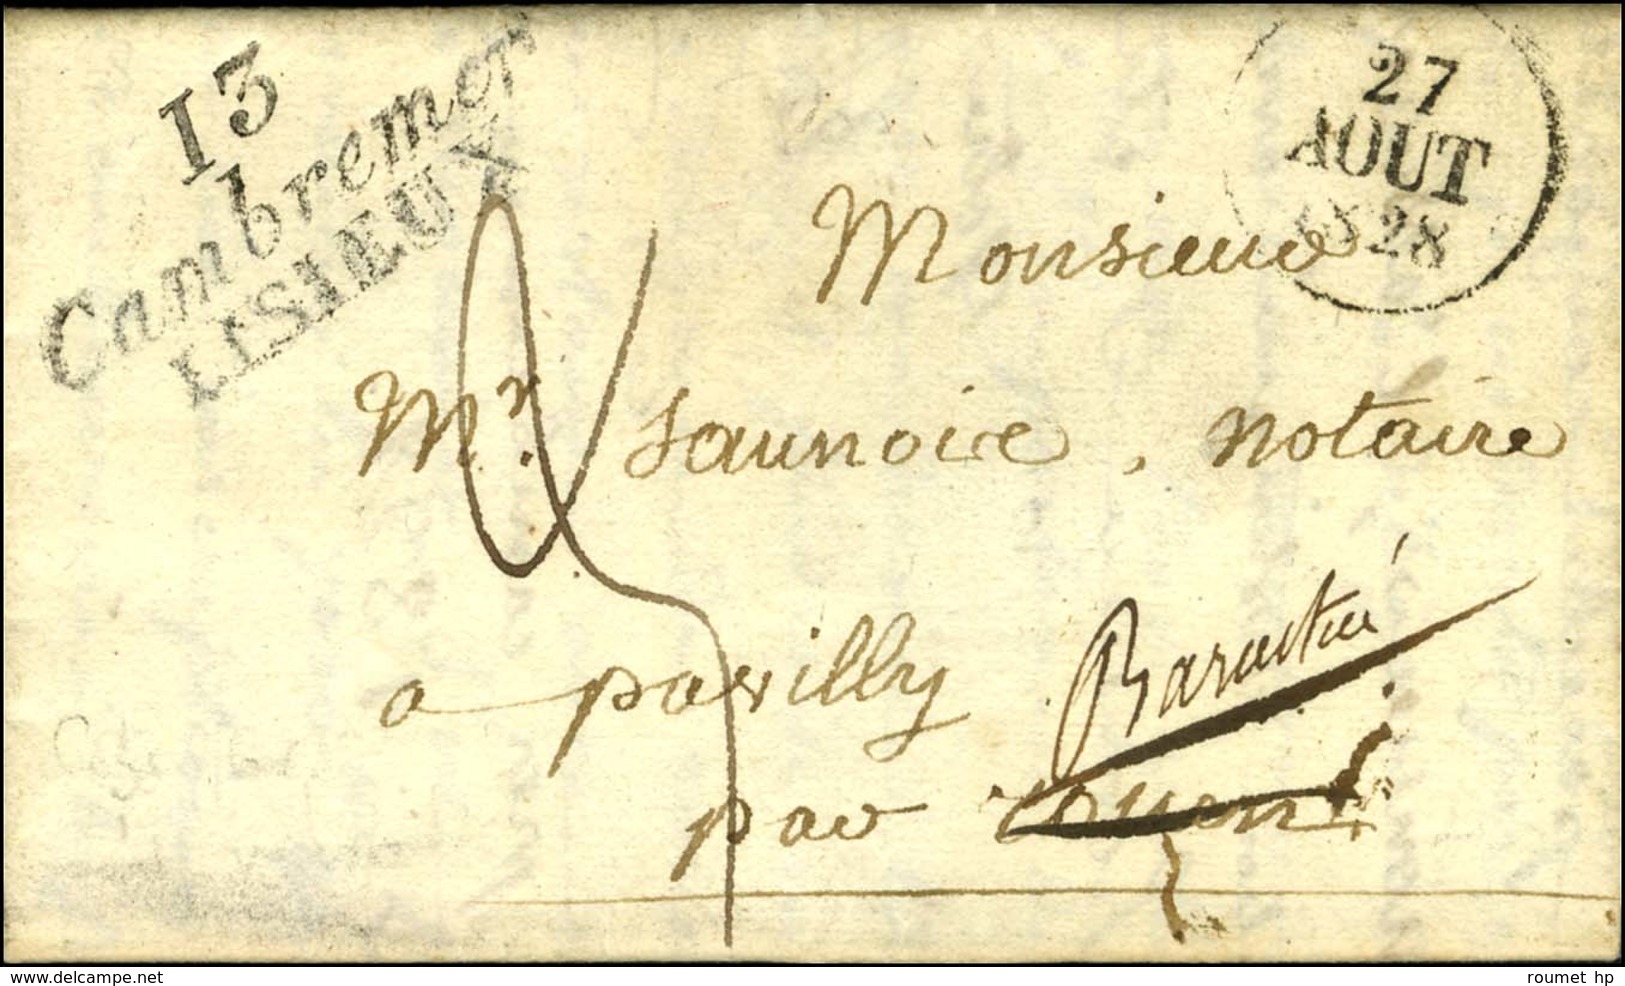 13
Cambremer
LISIEUX
27
AOUT
1828
Monsieur
Mr. Saunoire, notaire
a pavilly
par rouen
www.delcampe.net
roumet hp